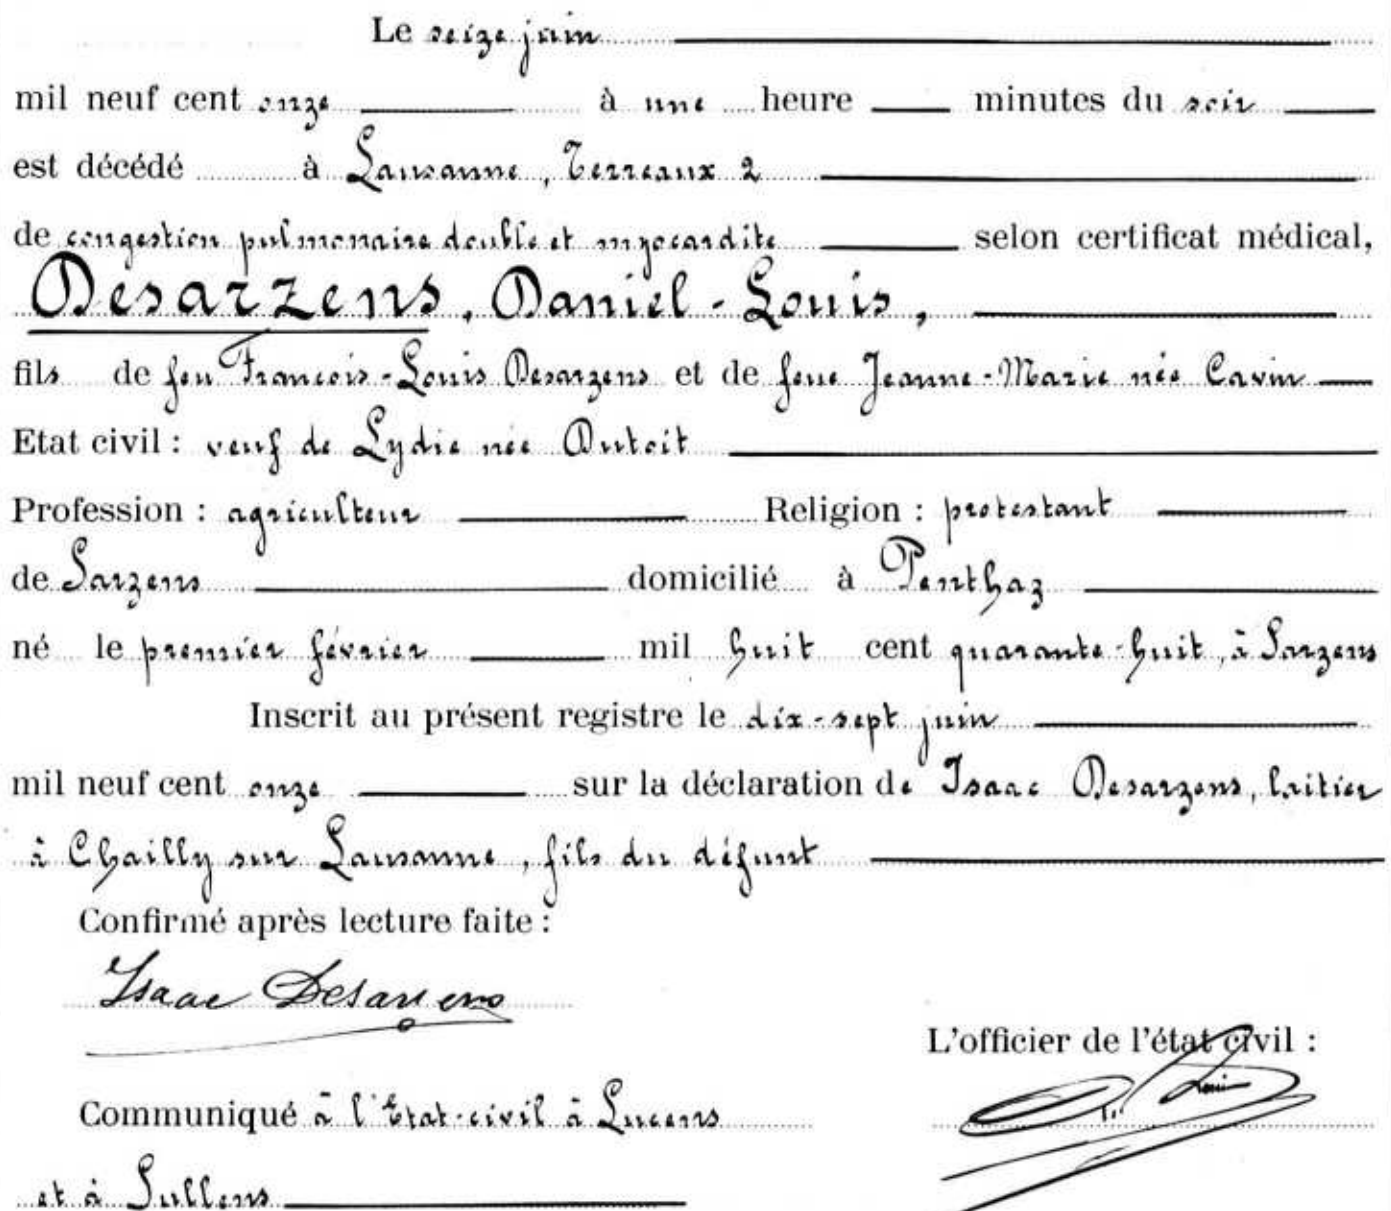 Le seize juin
mil neuf cent onze à une heure minutes du soir
est décédé à Lausanne, Terreaux 2
de congestion pulmonaire double et myocardite selon certificat médical,
Desarzens, Daniel-Louis,
fils de feu François-Louis Desarzens et de feue Jeanne-Marie née Cavin
Etat civil : veuf de Lydie née Dutoit
Profession : agriculteur Religion : protestant
de Sarzens domicilié à Penthaz
né le premier février mil huit cent quarante-huit, à Sarzens
Inscrit au présent registre le dix-sept juin
mil neuf cent onze sur la déclaration de Isaac Desarzens, laitier
à Chailly sur Lausanne, fils du défunt
Confirmé après lecture faite :
Isaac Desarzens
L'officier de l'état civil :
Communiqué à l'Etat-civil à Lucens
et à Sullens